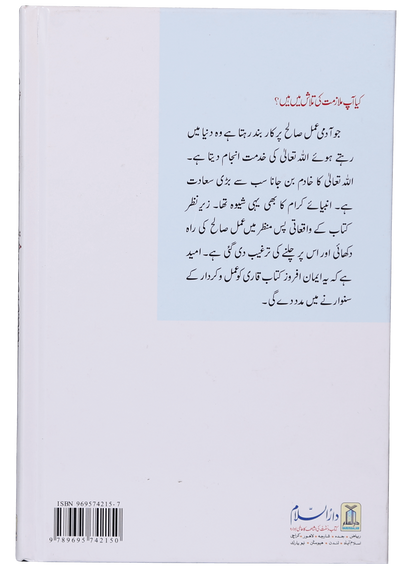 کیا آپ ملازمت کی تلاش میں ہیں؟
جو آدمی عمل صالح پر کار بند رہتا ہے وہ دنیا میں
رہتے ہوئے اللہ تعالیٰ کی خدمت انجام دیتا ہے۔
اللہ تعالیٰ کا خادم بن جانا سب سے بڑی سعادت
ہے۔ انبیائے کرام کا بھی یہی شیوہ تھا۔ زیرِ نظر
کتاب کے واقعاتی پس منظر میں عمل صالح کی راہ
دکھائی اور اس پر چلنے کی ترغیب دی گئی ہے۔ امید
ہے کہ یہ ایمان افروز کتاب قاری کو عمل و کردار کے
سنوارنے میں مدد دے گی۔
ISBN 969574215-7
9 789695 742150
دارالسلام
ریاض • جدہ • شارجہ • لاہور • کراچی
اسلام آباد • لندن • ہیوسٹن • نیو یارک